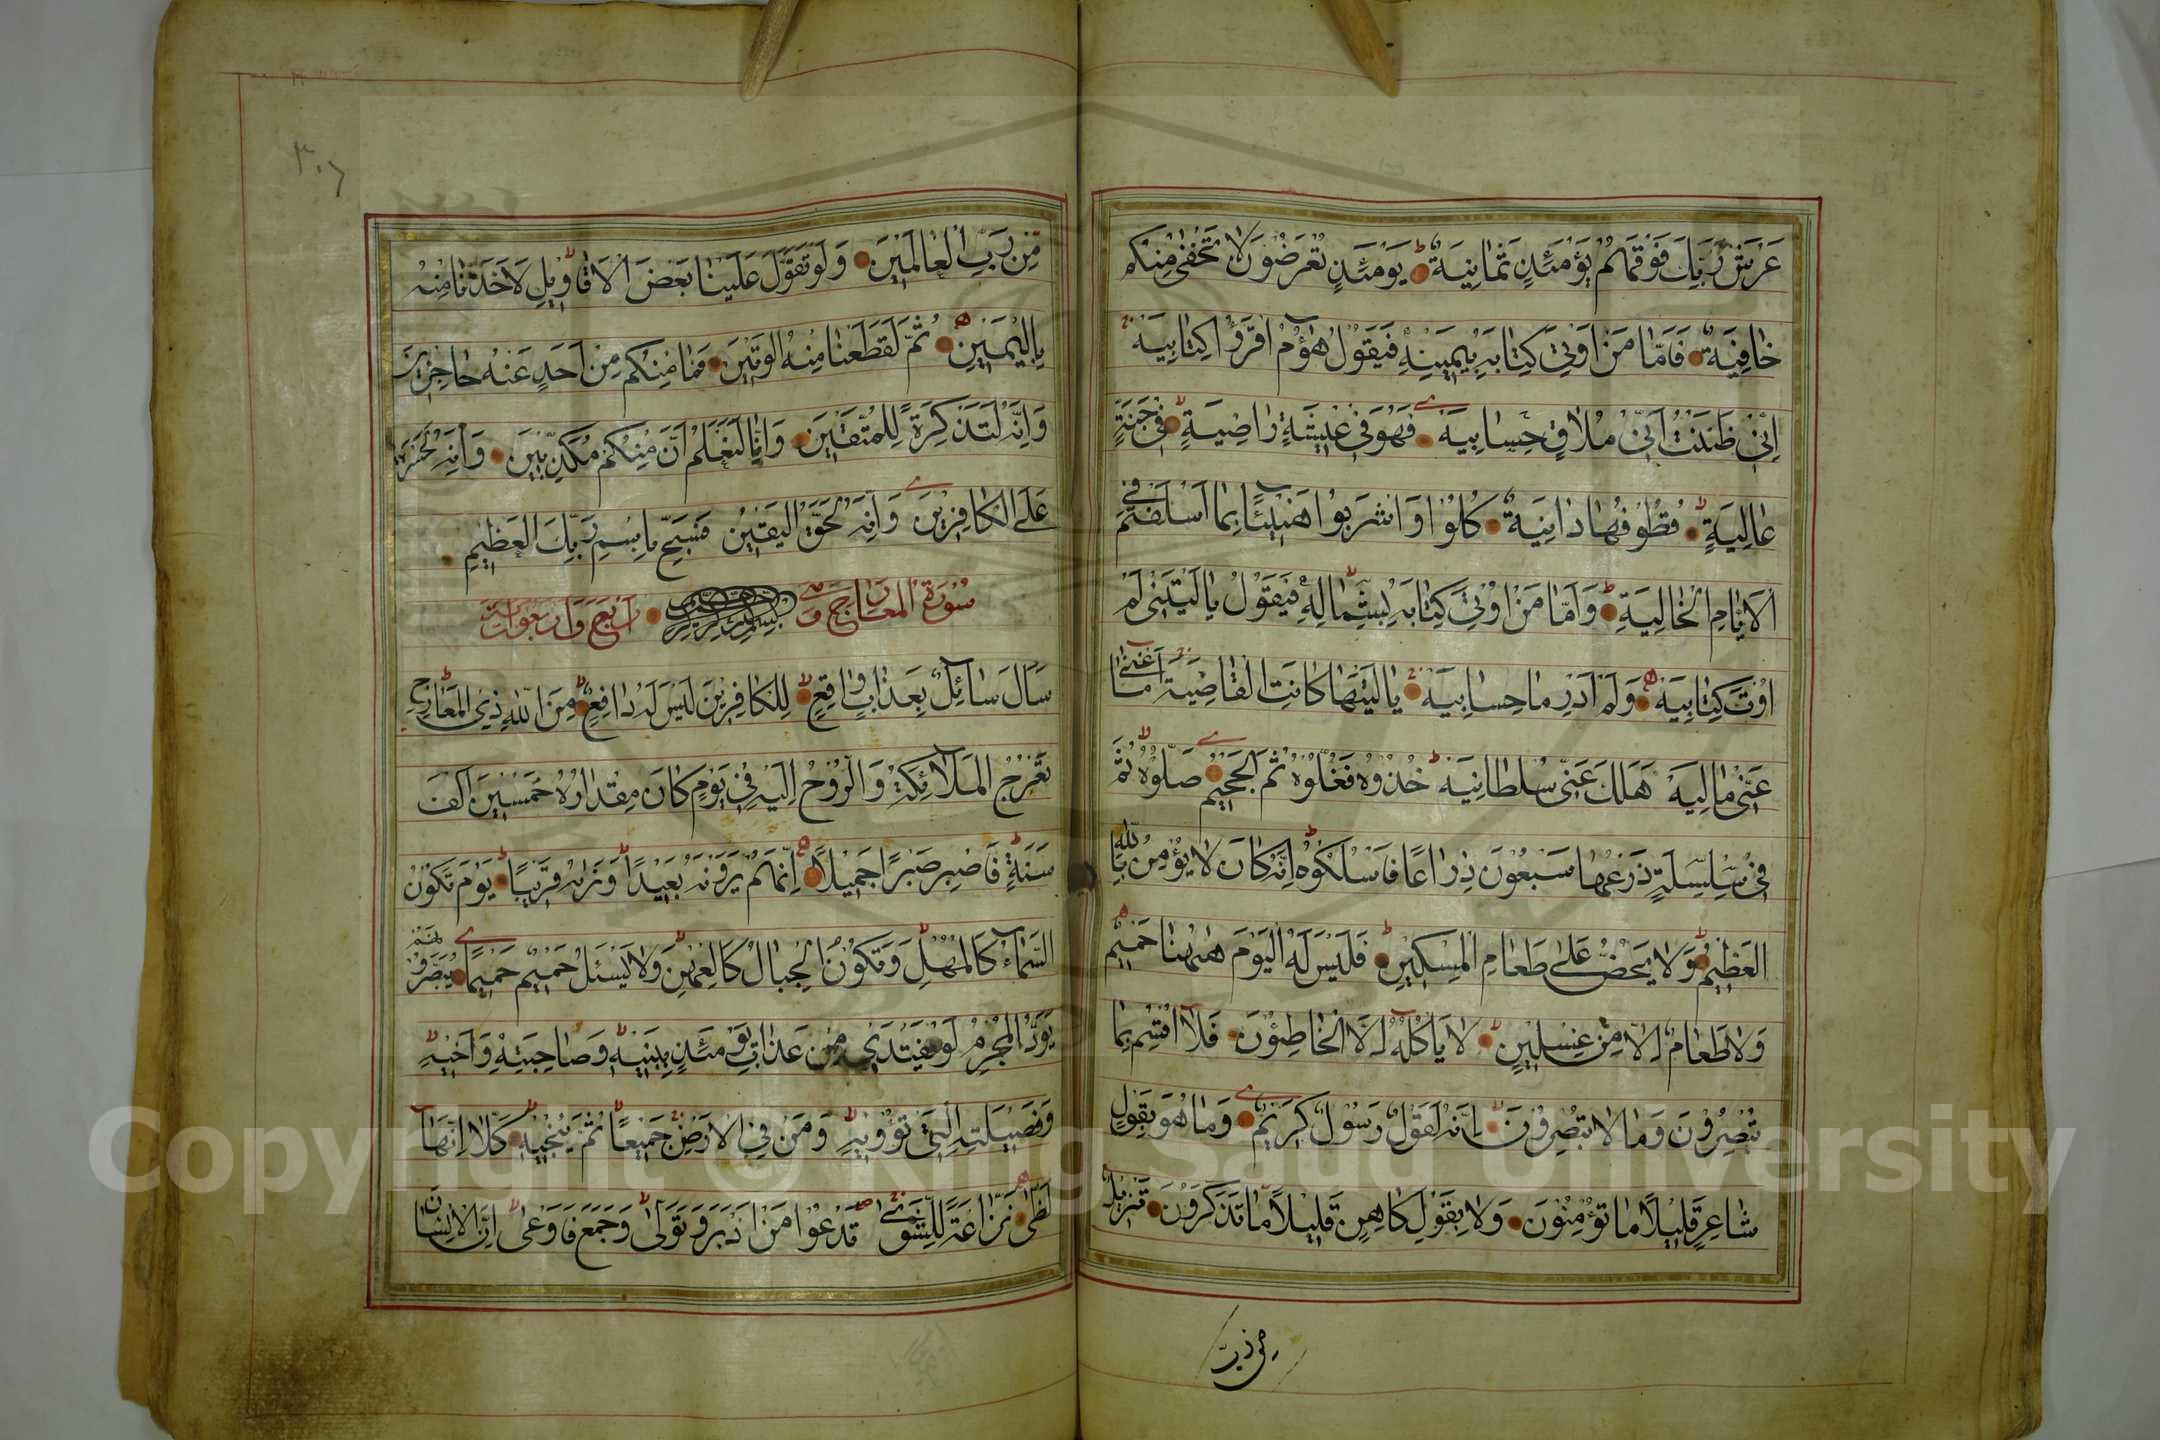 عَرْشَ رَبِّكَ فَوْقَهُمْ يَوْمَئِذٍ ثَمَانِيَةٌ يَوْمَئِذٍ تُعْرَضُونَ لَا تَخْفَى مِنْكُمْ
خَافِيَةٌ فَأَمَّا مَنْ اُوتِيَ كِتَابَهُ بِيَمِينِهِ فَيَقُولُ هَاؤُمُ اقْرَؤُا كِتَابِيَهْ
اِنِّي ظَنَنْتُ اَنِّي مُلَاقٍ حِسَابِيَهْ فَهُوَ فِي عِيشَةٍ رَاضِيَةٍ فِي جَنَّةٍ
عَالِيَةٍ قُطُوفُهَا دَانِيَةٌ كُلُوا وَاشْرَبُوا هَنِيئًا بِمَا اَسْلَفْتُمْ فِي
الْاَيَّامِ الْخَالِيَةِ وَاَمَّا مَنْ اُوتِيَ كِتَابَهُ بِشِمَالِهِ فَيَقُولُ يَالَيْتَنِي لَمْ
اُوتَ كِتَابِيَهْ وَلَمْ اَدْرِ مَا حِسَابِيَهْ يَالَيْتَهَا كَانَتِ الْقَاضِيَةَ مَا اَغْنٰى
عَنِّي مَالِيَهْ هَلَكَ عَنِّي سُلْطَانِيَهْ خُذُوهُ فَغُلُّوهُ ثُمَّ الْجَحِيمَ صَلُّوهُ ثُمَّ
فِي سِلْسِلَةٍ ذَرْعُهَا سَبْعُونَ ذِرَاعًا فَاسْلُكُوهُ اِنَّهُ كَانَ لَا يُؤْمِنُ بِاللّٰهِ
الْعَظِيمِ وَلَا يَحُضُّ عَلَى طَعَامِ الْمِسْكِينِ فَلَيْسَ لَهُ الْيَوْمَ هٰهُنَا حَمِيمٌ
وَلَا طَعَامٌ اِلَّا مِنْ غِسْلِينٍ لَا يَاْكُلُهُ اِلَّا الْخَاطِؤُنَ فَلَا اُقْسِمُ بِمَا
تُبْصِرُونَ وَمَا لَا تُبْصِرُونَ اِنَّهُ لَقَوْلُ رَسُولٍ كَرِيمٍ وَمَا هُوَ بِقَوْلِ
شَاعِرٍ قَلِيلًا مَا تُؤْمِنُونَ وَلَا بِقَوْلِ كَاهِنٍ قَلِيلًا مَا تَذَكَّرُونَ تَنْزِيلٌ
مِنْ رَبِّ الْعَالَمِينَ وَلَوْ تَقَوَّلَ عَلَيْنَا بَعْضَ الْاَقَاوِيلِ لَاَخَذْنَا مِنْهُ
بِالْيَمِينِ ثُمَّ لَقَطَعْنَا مِنْهُ الْوَتِينَ فَمَا مِنْكُمْ مِنْ اَحَدٍ عَنْهُ حَاجِزِينَ
وَاِنَّهُ لَتَذْكِرَةٌ لِلْمُتَّقِينَ وَاِنَّا لَنَعْلَمُ اَنَّ مِنْكُمْ مُكَذِّبِينَ وَاِنَّهُ لَحَسْرَةٌ
عَلَى الْكَافِرِينَ وَاِنَّهُ لَحَقُّ الْيَقِينِ فَسَبِّحْ بِاسْمِ رَبِّكَ الْعَظِيمِ
سُورَةُ الْمَعَارِجِ
سَاَلَ سَائِلٌ بِعَذَابٍ وَاقِعٍ لِلْكَافِرِينَ لَيْسَ لَهُ دَافِعٌ مِنَ اللّٰهِ ذِي الْمَعَارِجِ
تَعْرُجُ الْمَلَائِكَةُ وَالرُّوحُ اِلَيْهِ فِي يَوْمٍ كَانَ مِقْدَارُهُ خَمْسِينَ اَلْفَ
سَنَةٍ فَاصْبِرْ صَبْرًا جَمِيلًا اِنَّهُمْ يَرَوْنَهُ بَعِيدًا وَنَرَاهُ قَرِيبًا يَوْمَ تَكُونُ
السَّمَاءُ كَالْمُهْلِ وَتَكُونُ الْجِبَالُ كَالْعِهْنِ وَلَا يَسْئَلُ حَمِيمٌ حَمِيمًا يُبَصَّرُونَهُمْ
يَوَدُّ الْمُجْرِمُ لَوْ يَفْتَدِي مِنْ عَذَابِ يَوْمِئِذٍ بِبَنِيهِ وَصَاحِبَتِهِ وَاَخِيهِ
وَفَصِيلَتِهِ الَّتِي تُؤْوِيهِ وَمَنْ فِي الْاَرْضِ جَمِيعًا ثُمَّ يُنْجِيهِ كَلَّا اِنَّهَا
لَظٰى نَزَّاعَةً لِلشَّوٰى تَدْعُوا مَنْ اَدْبَرَ وَتَوَلّٰى وَجَمَعَ فَاَوْعٰى اِنَّ الْاِنْسَانَ
Copyright © King Saud University